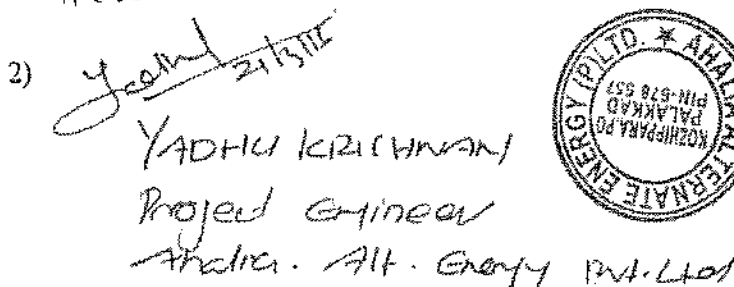 2)
21/3/15
YADHU KRISHNAN
Project Engineer
Ahalia. Alt. Energy Pvt. Ltd
AHALIA ALTERNATE ENERGY (P) LTD. *
KOZHIPPARA.PO
PALAKKAD
PIN-678 557